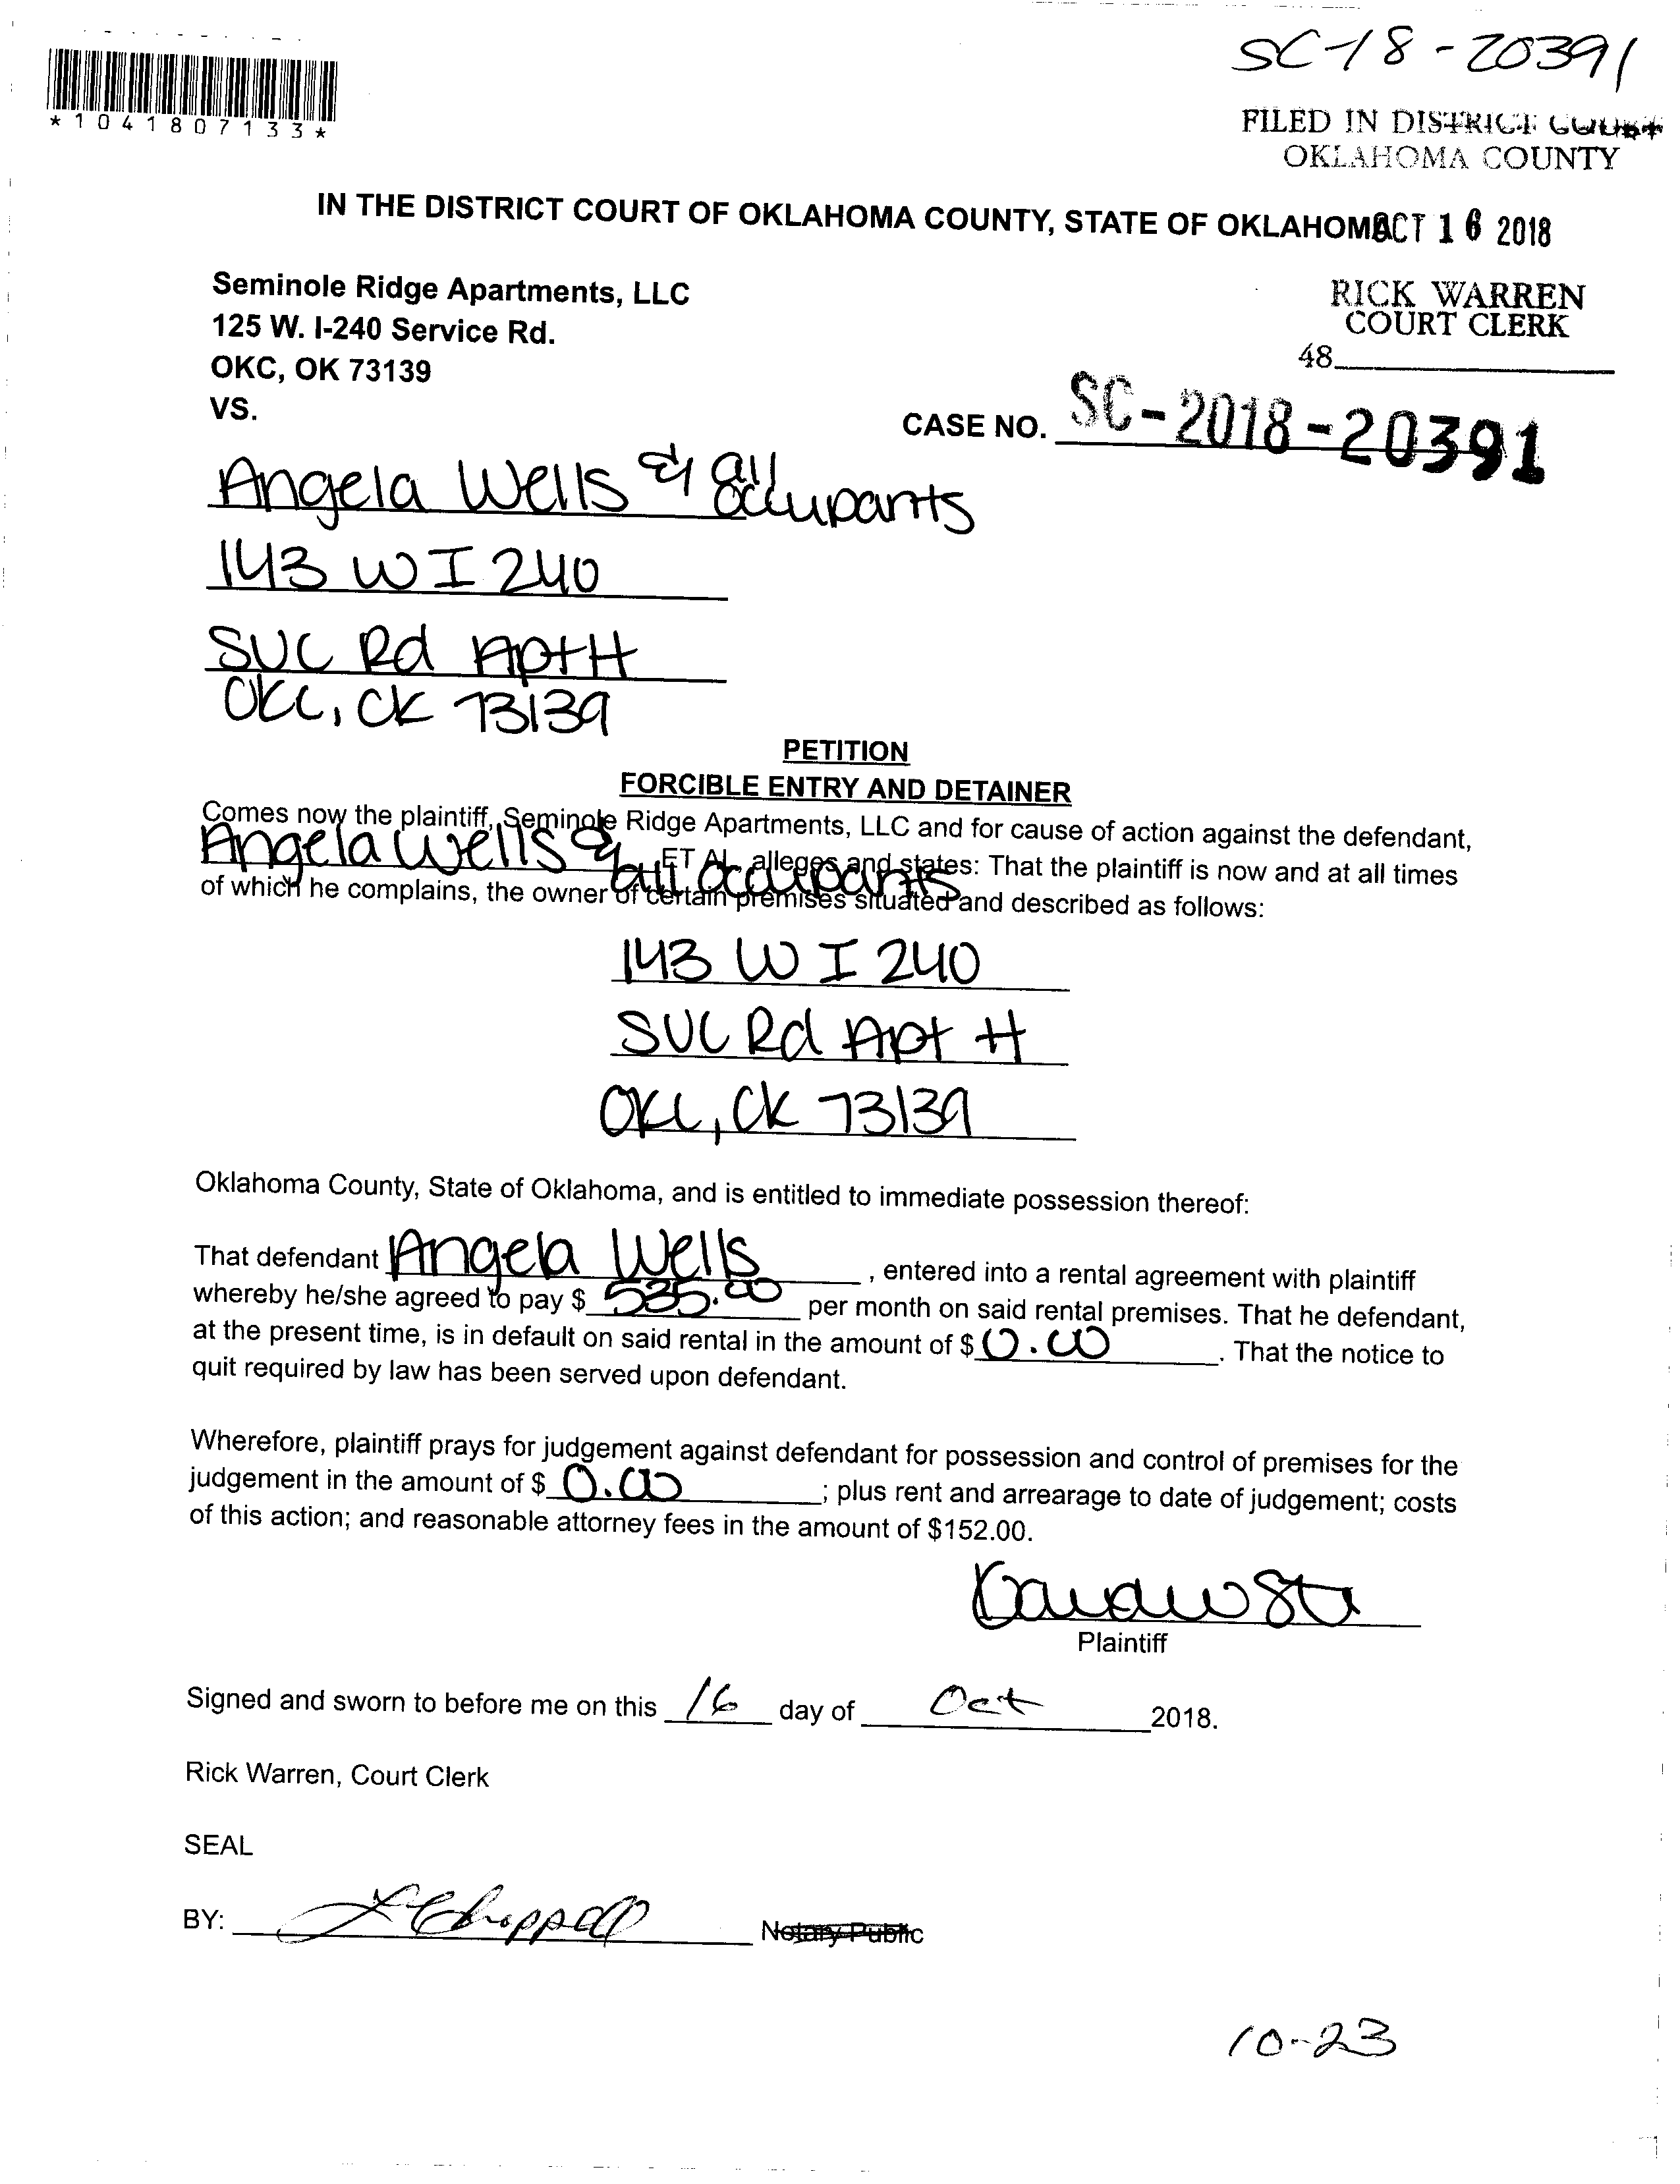 SC-18-20391
*1041807133*
FILED IN DISTRICT COURT
OKLAHOMA COUNTY
IN THE DISTRICT COURT OF OKLAHOMA COUNTY, STATE OF OKLAHOMA
OCT 16 2018
Seminole Ridge Apartments, LLC
125 W. I-240 Service Rd.
OKC, OK 73139
VS.
RICK WARREN
COURT CLERK
48
CASE NO. SC-2018-20391
Angela Wells & all occupants
143 W I 240
SVC Rd Apt H
OKC, OK 73139
PETITION
FORCIBLE ENTRY AND DETAINER
Comes now the plaintiff, Seminole Ridge Apartments, LLC and for cause of action against the defendant,
Angela Wells & all occupants ET AL, alleges and states: That the plaintiff is now and at all times
of which he complains, the owner of certain premises situated and described as follows:
143 W I 240
SVC Rd Apt H
OKC, OK 73139
Oklahoma County, State of Oklahoma, and is entitled to immediate possession thereof:
That defendant Angela Wells, entered into a rental agreement with plaintiff
whereby he/she agreed to pay $ 535.00 per month on said rental premises. That he defendant,
at the present time, is in default on said rental in the amount of $ 0.00. That the notice to
quit required by law has been served upon defendant.
Wherefore, plaintiff prays for judgement against defendant for possession and control of premises for the
judgement in the amount of $ 0.00; plus rent and arrearage to date of judgement; costs
of this action; and reasonable attorney fees in the amount of $152.00.
Plaintiff
Signed and sworn to before me on this 16 day of Oct 2018.
Rick Warren, Court Clerk
SEAL
BY: Chappell Notary Public
10-23